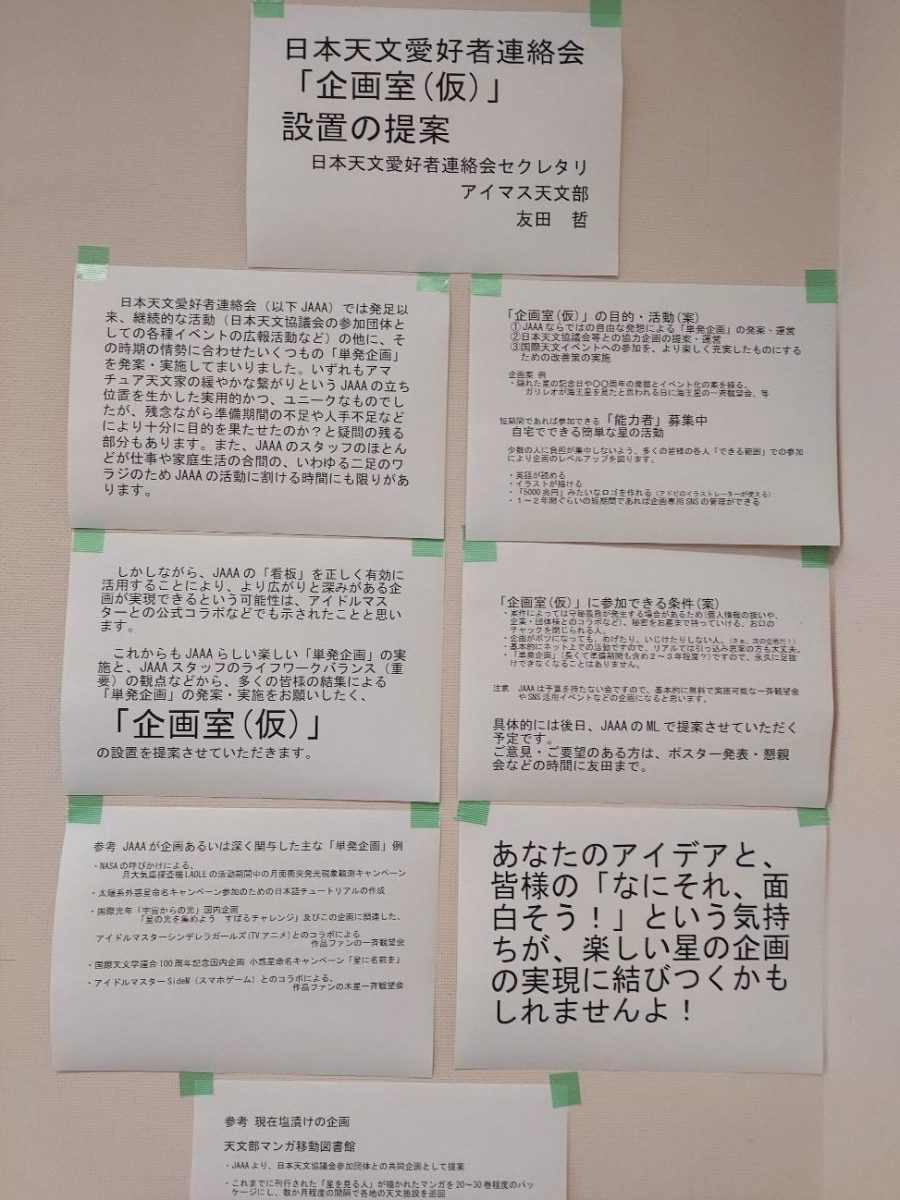 日本天文愛好者連絡会
「企画室(仮)」
設置の提案
日本天文愛好者連絡会セクレタリ
アイマス天文部
友田　哲
日本天文愛好者連絡会（以下JAAA）では発足以
来、継続的な活動（日本天文協議会の参加団体と
しての各種イベントの広報活動など）の他に、そ
の時期の情勢に合わせたいくつもの「単発企画」
を発案・実施してまいりました。いずれもアマ
チュア天文家の緩やかな繋がりというJAAAの立ち
位置を生かした実用的かつ、ユニークなものでし
たが、残念ながら準備期間の不足や人手不足など
により十分に目的を果たせたのか？と疑問の残る
部分もあります。また、JAAAのスタッフのほとん
どが仕事や家庭生活の合間の、いわゆる二足のワ
ラジのためJAAAの活動に割ける時間にも限りがあ
ります。
「企画室(仮)」の目的・活動(案)
①JAAAならではの自由な発想による「単発企画」の発案・運営
②日本天文協議会等との協力企画の提案・運営
③国際天文イベントへの参加を、より楽しく充実したものにする
ための改善策の実施
企画案 例
・隠れた星の記念日や〇〇周年の発掘とイベント化の案を練る。
ガリレオが海王星を見たと思われる日に海王星の一斉観望会、等
短期間であれば参加できる「能力者」募集中
自宅でできる簡単な星の活動
少数の人に負担が集中しないよう、多くの皆様の各人「できる範囲」での参加
により企画のレベルアップを図ります。
・英語が読める
・イラストが描ける
・「5000兆円」みたいなロゴを作れる（アドビのイラストレーターが使える）
・１～２年間ぐらいの短期間であれば企画専用SNSの管理ができる
しかしながら、JAAAの「看板」を正しく有効に
活用することにより、より広がりと深みがある企
画が実現できるという可能性は、アイドルマス
ターとの公式コラボなどでも示されたことと思い
ます。
これからもJAAAらしい楽しい「単発企画」の実
施と、JAAAスタッフのライフワークバランス（重
要）の観点などから、多くの皆様の結集による
「単発企画」の発案・実施をお願いしたく、
「企画室(仮)」
の設置を提案させていただきます。
「企画室(仮)」に参加できる条件(案)
・案件によっては守秘義務が発生する場合があるため(個人情報の扱いや、
企業・団体様とのコラボなど)、秘密をお墓まで持っていける、お口の
チャックを閉じられる人。
・企画がボツになっても、めげたり、いじけたりしない人。(さぁ、次の企画だ！)
・基本的にネット上での活動ですので、リアルでは引っ込み思案の方も大丈夫。
・「単発企画」(長くて準備期間も含め２～３年程度？)ですので、永久に足抜
けできなくなることはありません。
注意　JAAAは予算を持たない会ですので、基本的に無料で実施可能な一斉観望会
やSNS活用イベントなどの企画になると思います。
具体的には後日、JAAAのMLで提案させていただく
予定です。
ご意見・ご要望のある方は、ポスター発表・懇親
会などの時間に友田まで。
参考 JAAAが企画あるいは深く関与した主な「単発企画」例
・NASAの呼びかけによる、
月大気塵探査機LADLEの活動期間中の月面衝突発光現象観測キャンペーン
・太陽系外惑星命名キャンペーン参加のための日本語チュートリアルの作成
・国際光年「宇宙からの光」国内企画
「星の光を集めよう　すばるチャレンジ」及びこの企画に関連した、
アイドルマスターシンデレラガールズ(TVアニメ)とのコラボによる
作品ファンの一斉観望会
・国際天文学連合100周年記念国内企画 小惑星命名キャンペーン「星に名前を」
・アイドルマスターSideM（スマホゲーム）とのコラボによる、
作品ファンの木星一斉観望会
あなたのアイデアと、
皆様の「なにそれ、面
白そう！」という気持
ちが、楽しい星の企画
の実現に結びつくかも
しれませんよ！
参考 現在塩漬けの企画
天文部マンガ移動図書館
・JAAAより、日本天文協議会参加団体との共同企画として提案
・これまでに刊行された「星を見る人」が描かれたマンガを20～30巻程度のパッ
ケージにし、数か月程度の間隔で各地の天文施設を巡回